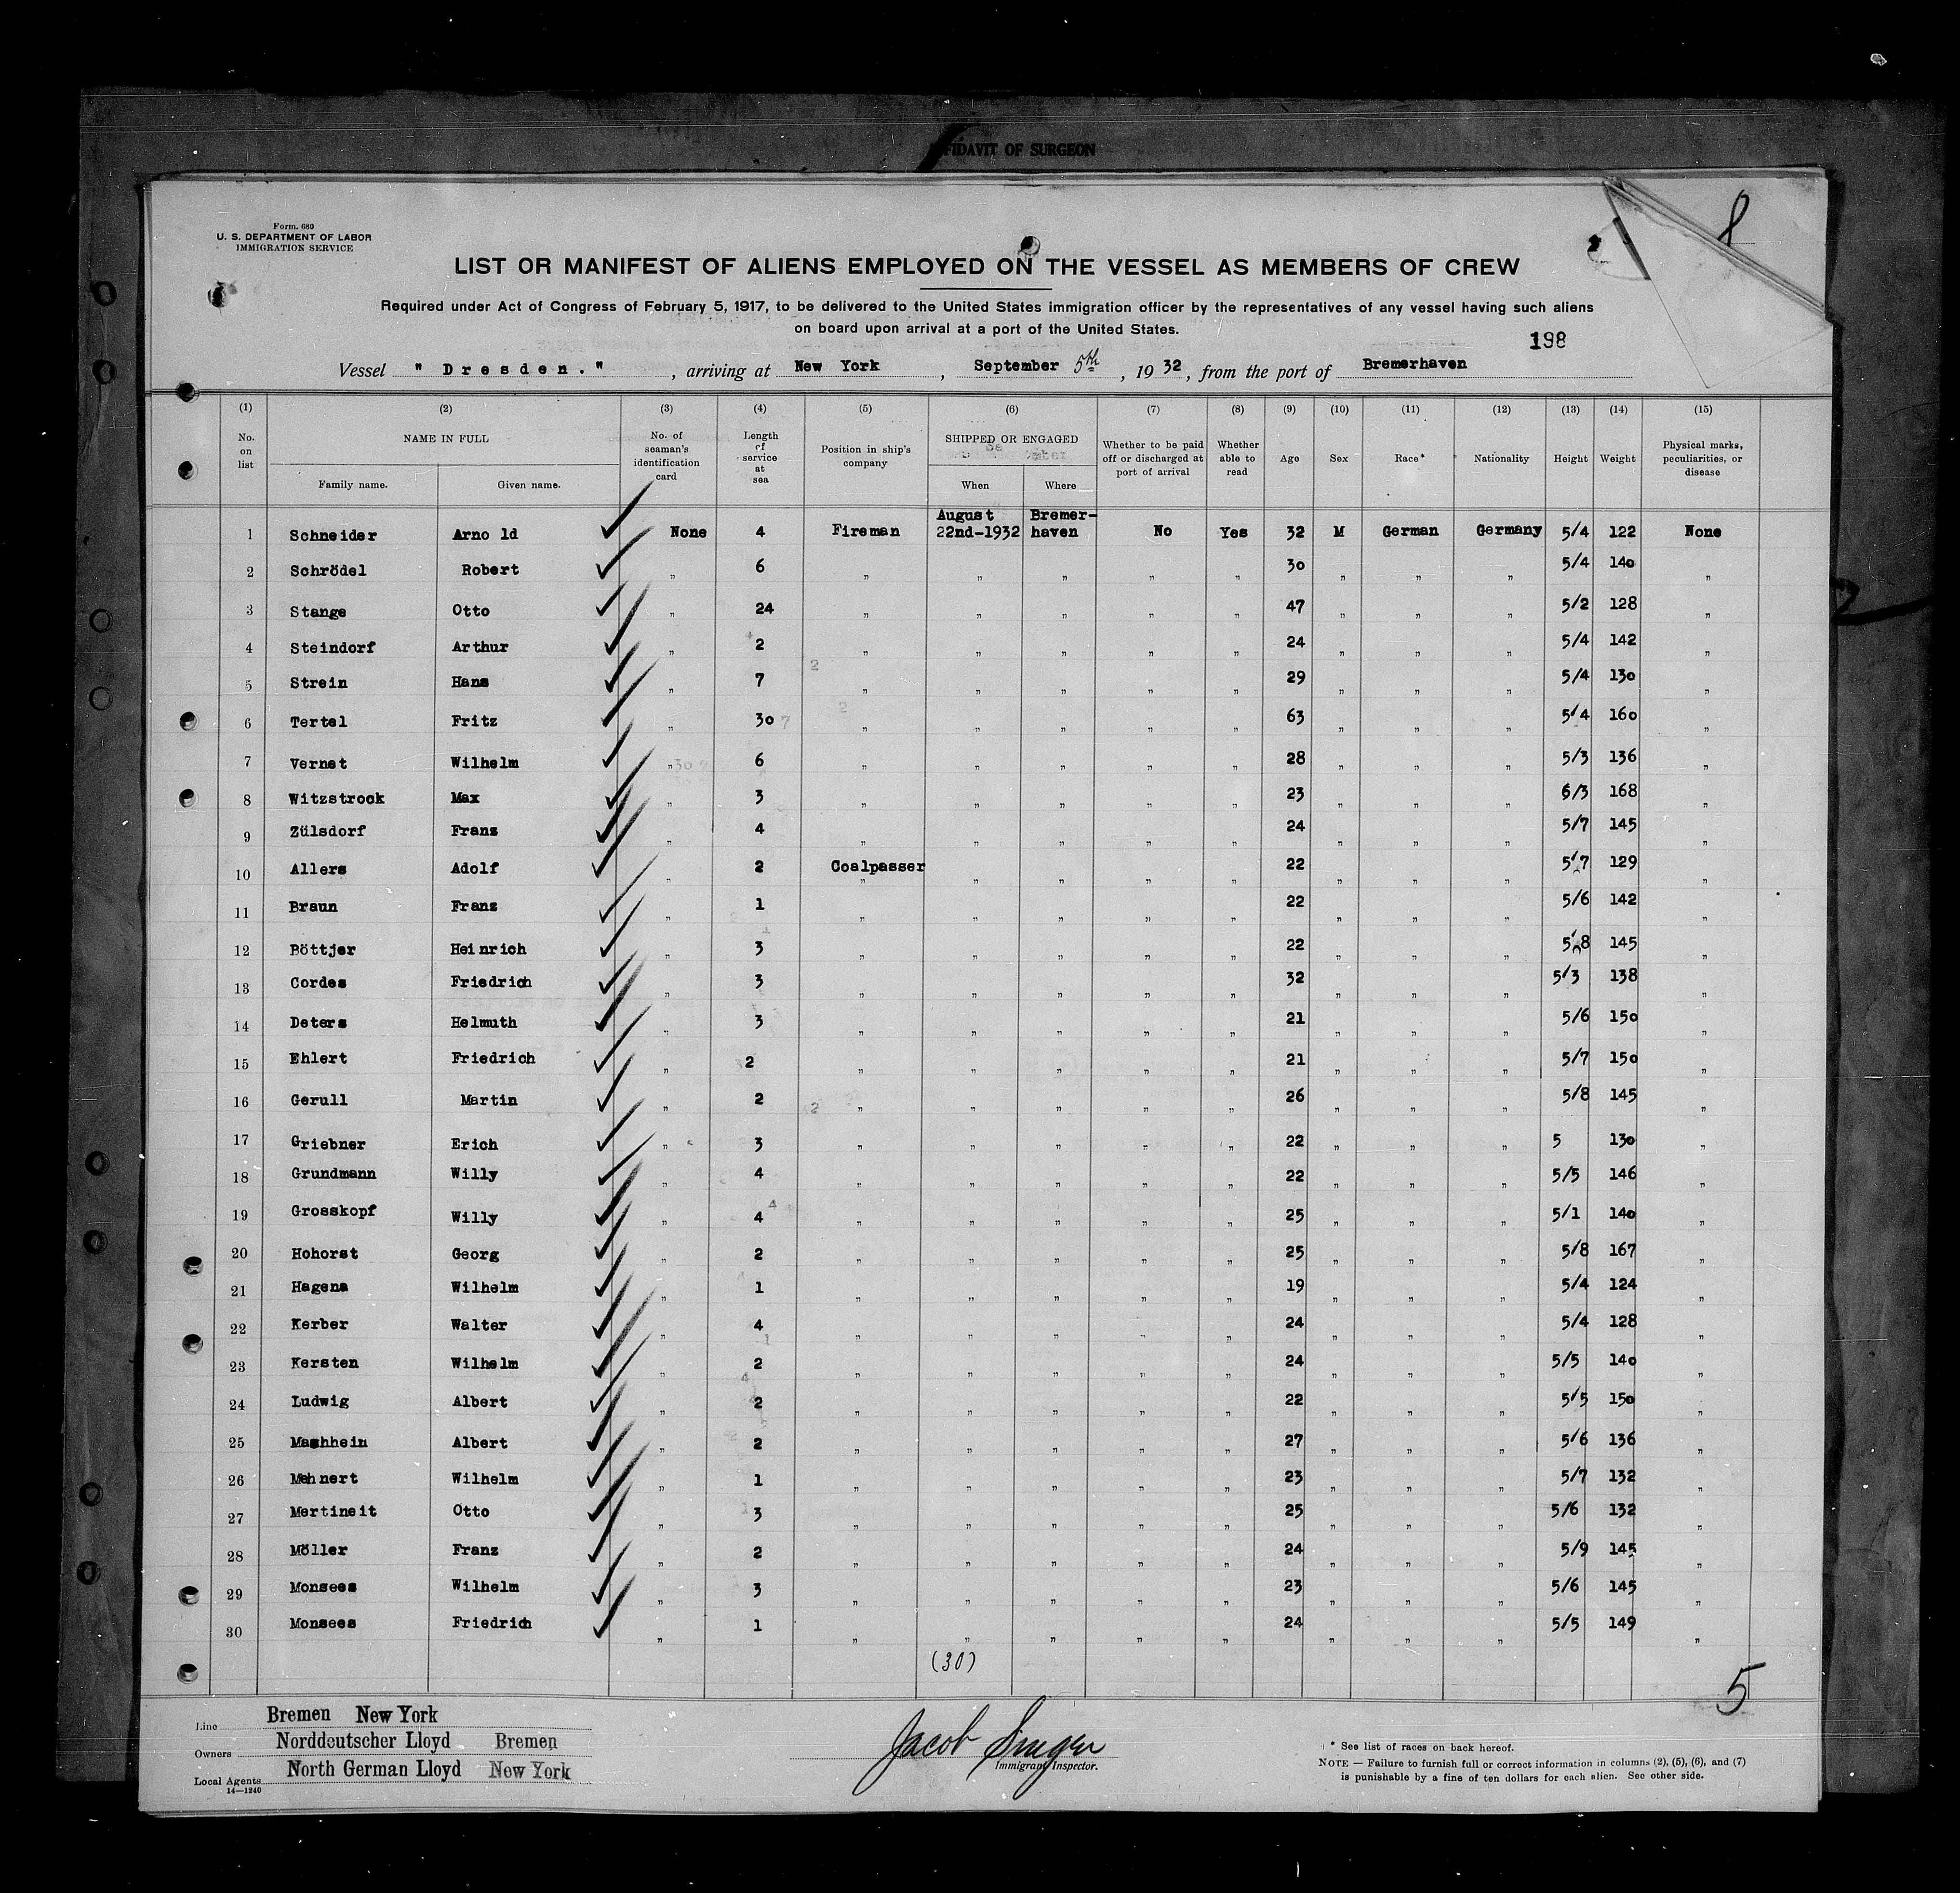 FIDAVIT OF SURGEON
8
Form. 680
U. S. DEPARTMENT OF LABOR
IMMIGRATION SERVICE
LIST OR MANIFEST OF ALIENS EMPLOYED ON THE VESSEL AS MEMBERS OF CREW
Required under Act of Congress of February 5, 1917, to be delivered to the United States immigration officer by the representatives of any vessel having such aliens
on board upon arrival at a port of the United States.
198
Vessel " Dresden. " , arriving at New York , September 5th , 19 32, from the port of Bremerhaven
(1) (2) (3) (4) (5) (6) (7) (8) (9) (10) (11) (12) (13) (14) (15)
No. on list NAME IN FULL Family name. Given name. No. of seaman's identification card Length of service at sea Position in ship's company SHIPPED OR ENGAGED When Where Whether to be paid off or discharged at port of arrival Whether able to read Age Sex Race* Nationality Height Weight Physical marks, peculiarities, or disease
1 Schneider Arno ld None 4 Fireman August 22nd-1932 Bremer-haven No Yes 32 M German Germany 5/4 122 None
2 Schrödel Robert " 6 " " " " " 30 " " " 5/4 140 "
3 Stange Otto " 24 " " " " " 47 " " " 5/2 128 "
4 Steindorf Arthur " 2 " " " " " 24 " " " 5/4 142 "
5 Strein Hans " 7 " " " " " 29 " " " 5/4 130 "
6 Tertel Fritz " 30 " " " " " 63 " " " 5/4 160 "
7 Vernet Wilhelm " 6 " " " " " 28 " " " 5/3 136 "
8 Witzstrock Max " 3 " " " " " 23 " " " 6/3 168 "
9 Zülsdorf Franz " 4 " " " " " 24 " " " 5/7 145 "
10 Allers Adolf " 2 Coalpasser " " " " 22 " " " 5/7 129 "
11 Braun Franz " 1 " " " " " 22 " " " 5/6 142 "
12 Böttjer Heinrich " 3 " " " " " 22 " " " 5/8 145 "
13 Cordes Friedrich " 3 " " " " " 32 " " " 5/3 138 "
14 Deters Helmuth " 3 " " " " " 21 " " " 5/6 150 "
15 Ehlert Friedrich " 2 " " " " " 21 " " " 5/7 150 "
16 Gerull Martin " 2 " " " " " 26 " " " 5/8 145 "
17 Griebner Erich " 3 " " " " " 22 " " " 5 130 "
18 Grundmann Willy " 4 " " " " " 22 " " " 5/5 146 "
19 Grosskopf Willy " 4 " " " " " 25 " " " 5/1 140 "
20 Hohorst Georg " 2 " " " " " 25 " " " 5/8 167 "
21 Hagena Wilhelm " 1 " " " " " 19 " " " 5/4 124 "
22 Kerber Walter " 4 " " " " " 24 " " " 5/4 128 "
23 Kersten Wilhelm " 2 " " " " " 24 " " " 5/5 140 "
24 Ludwig Albert " 2 " " " " " 22 " " " 5/5 150 "
25 Albert " 2 " " " " " 27 " " " 5/6 136 "
26 Mehnert Wilhelm " 1 " " " " " 23 " " " 5/7 132 "
27 Mertineit Otto " 3 " " " " " 25 " " " 5/6 132 "
28 Möller Franz " 2 " " " " " 24 " " " 5/9 145 "
29 Monsees Wilhelm " 3 " " " " " 23 " " " 5/6 145 "
30 Monsees Friedrich " 1 " " " " " 24 " " " 5/5 149 "
(30)
5
Line Bremen New York
Owners Norddeutscher Lloyd Bremen
Local Agents North German Lloyd New York
14—1240
Jacob Singer
Immigrant Inspector.
* See list of races on back hereof.
NOTE — Failure to furnish full or correct information in columns (2), (5), (6), and (7)
is punishable by a fine of ten dollars for each alien. See other side.